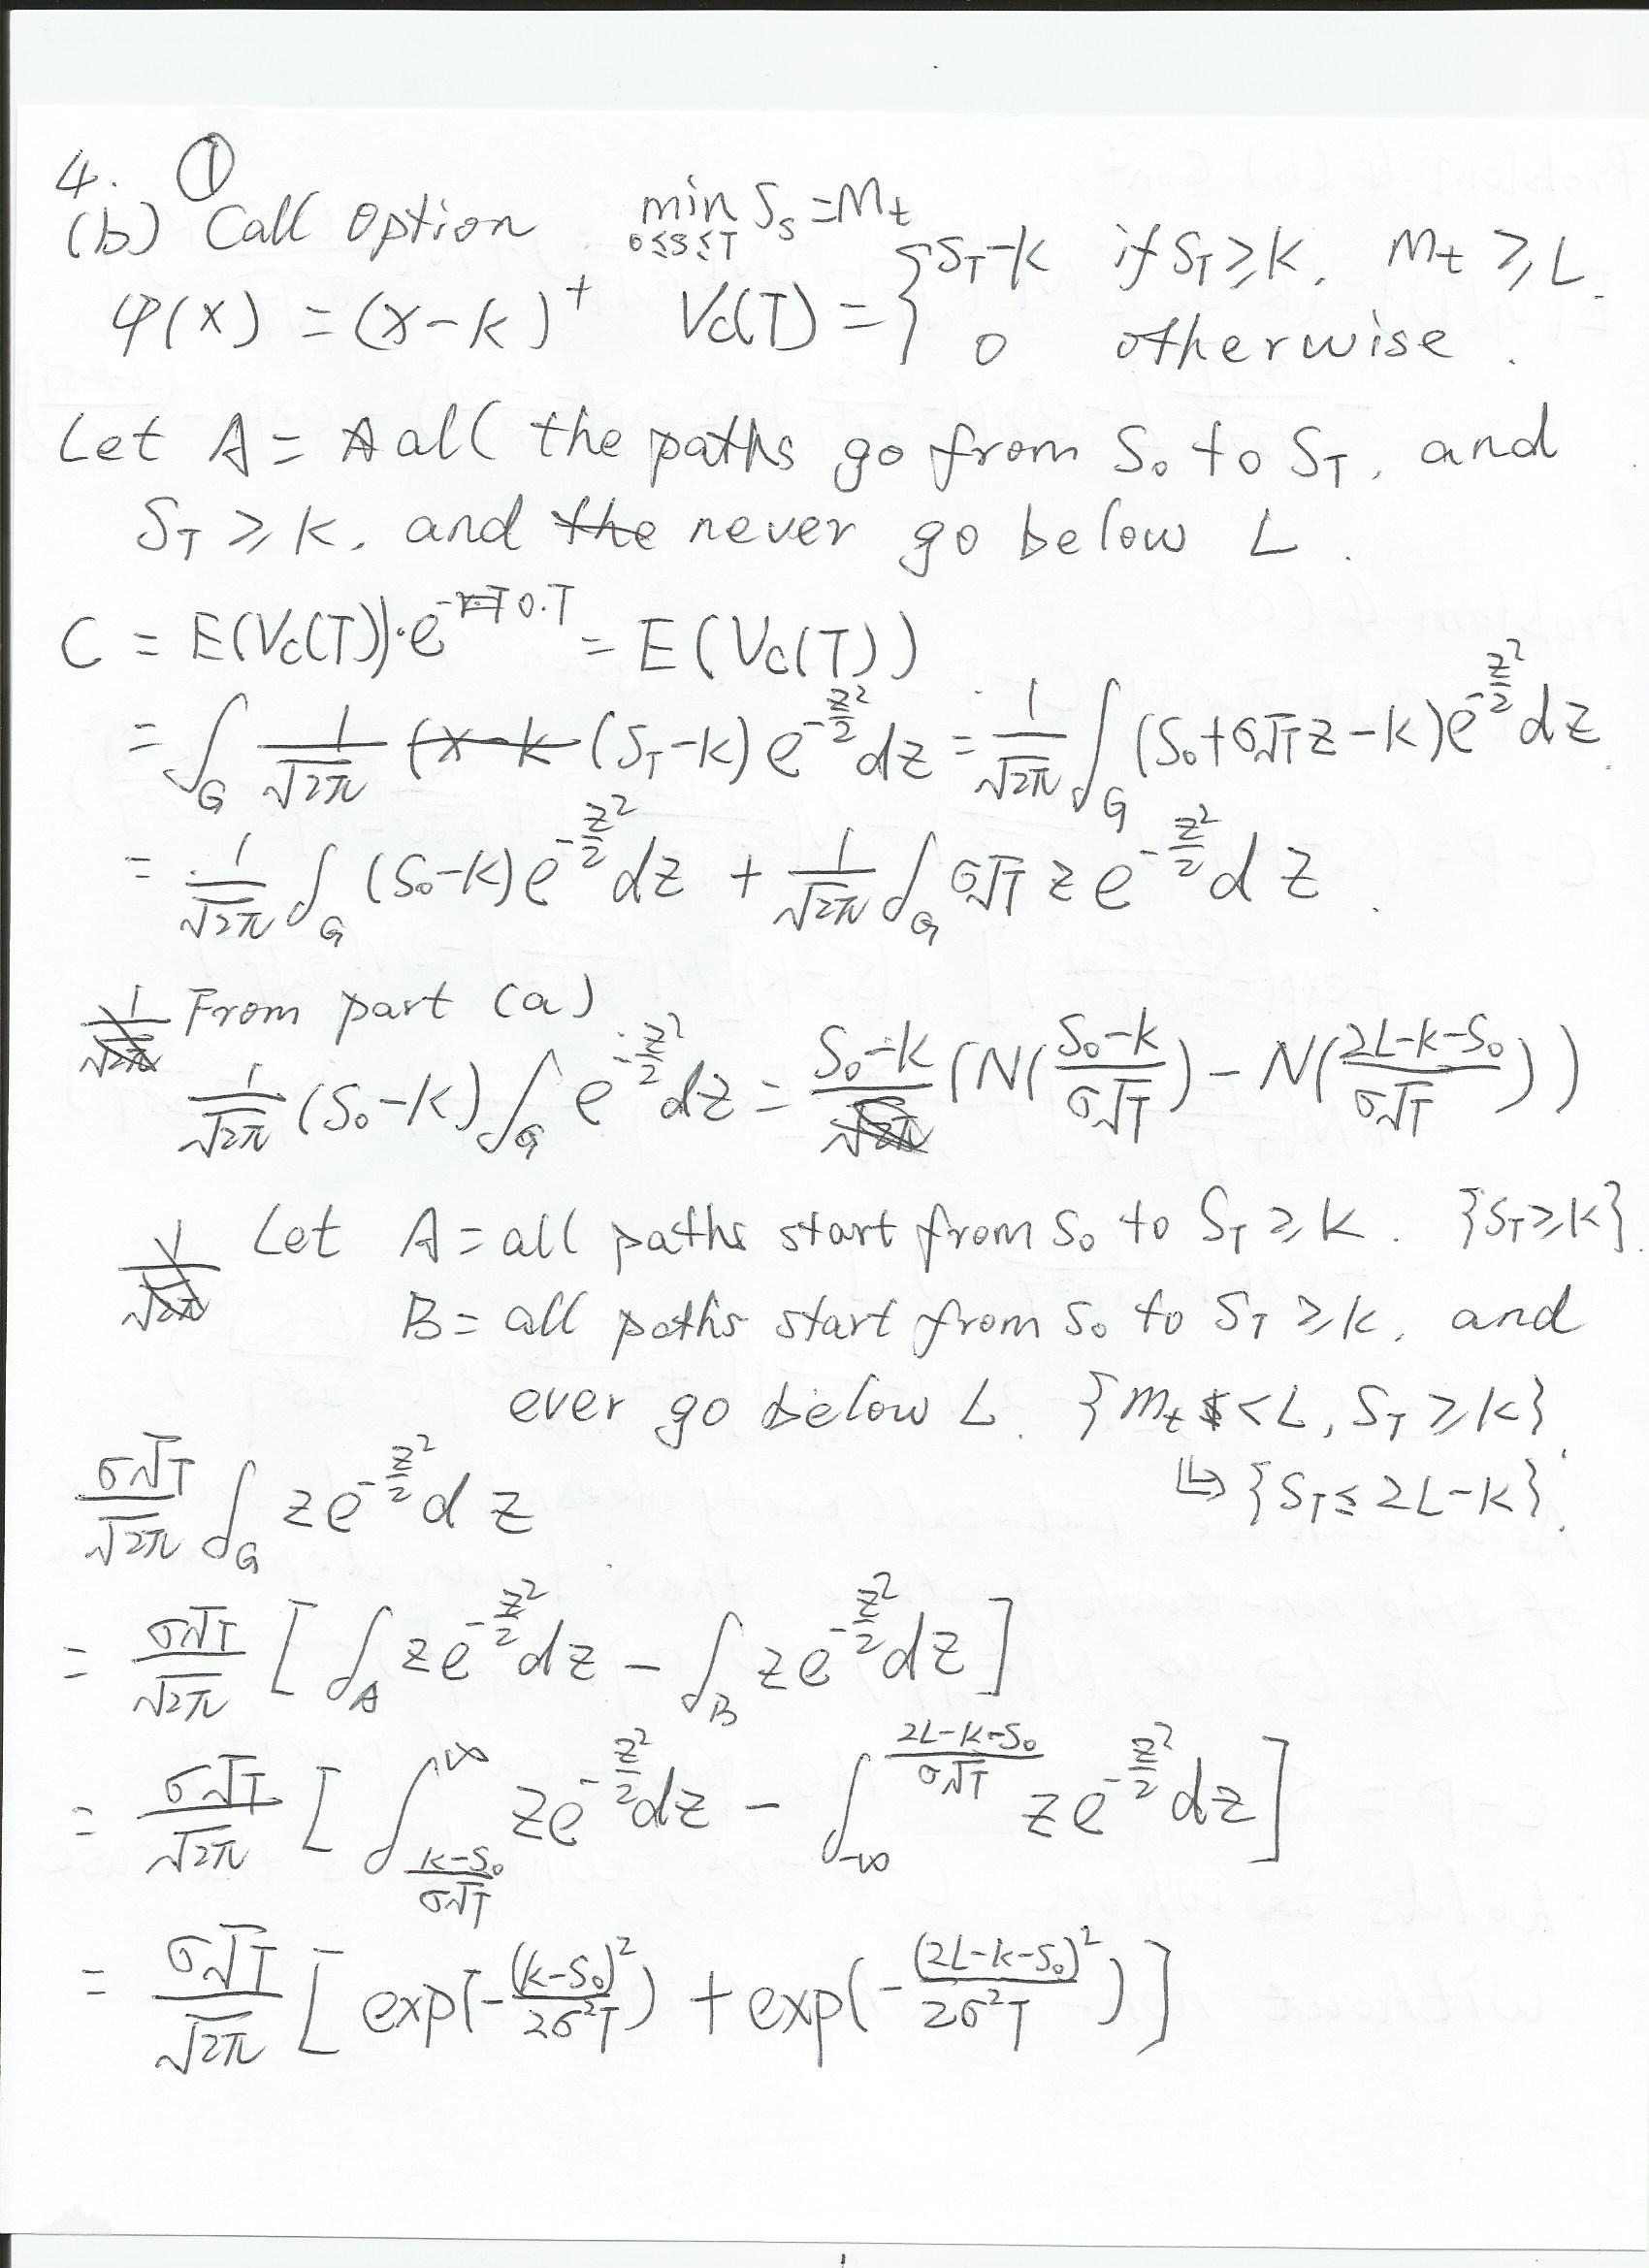 4. ①
(b) Call Option min 0≤s≤T S_s = M_t
φ(x) = (x-k)^+ V_c(T) = { S_T-k if S_T ≥ k, M_t ≥ L.
0 otherwise.
Let A = all the paths go from S_0 to S_T, and
S_T ≥ k, and never go below L.
C = E(V_c(T))·e^{-0·T} = E(V_c(T))
= ∫_G 1/√2π (S_T-k) e^{-z²/2} dz = 1/√2π ∫_G (S_0+σ√T z-k) e^{-z²/2} dz.
= 1/√2π ∫_G (S_0-k) e^{-z²/2} dz + 1/√2π ∫_G σ√T z e^{-z²/2} dz.
From part (a)
1/√2π (S_0-k) ∫_G e^{-z²/2} dz = S_0-k (N((S_0-k)/(σ√T)) - N((2L-k-S_0)/(σ√T)))
Let A = all paths start from S_0 to S_T ≥ k. {S_T ≥ k}.
B = all paths start from S_0 to S_T ≥ k, and
ever go below L. {M_t < L, S_T ≥ k}.
↳ {S_T ≤ 2L-k}.
σ√T/√2π ∫_G z e^{-z²/2} dz
= σ√T/√2π [ ∫_A z e^{-z²/2} dz - ∫_B z e^{-z²/2} dz ]
= σ√T/√2π [ ∫_{(k-S_0)/(σ√T)}^{∞} z e^{-z²/2} dz - ∫_{-∞}^{(2L-k-S_0)/(σ√T)} z e^{-z²/2} dz ]
= σ√T/√2π [ exp(-(k-S_0)²/(2σ²T)) + exp(-(2L-k-S_0)²/(2σ²T)) ]